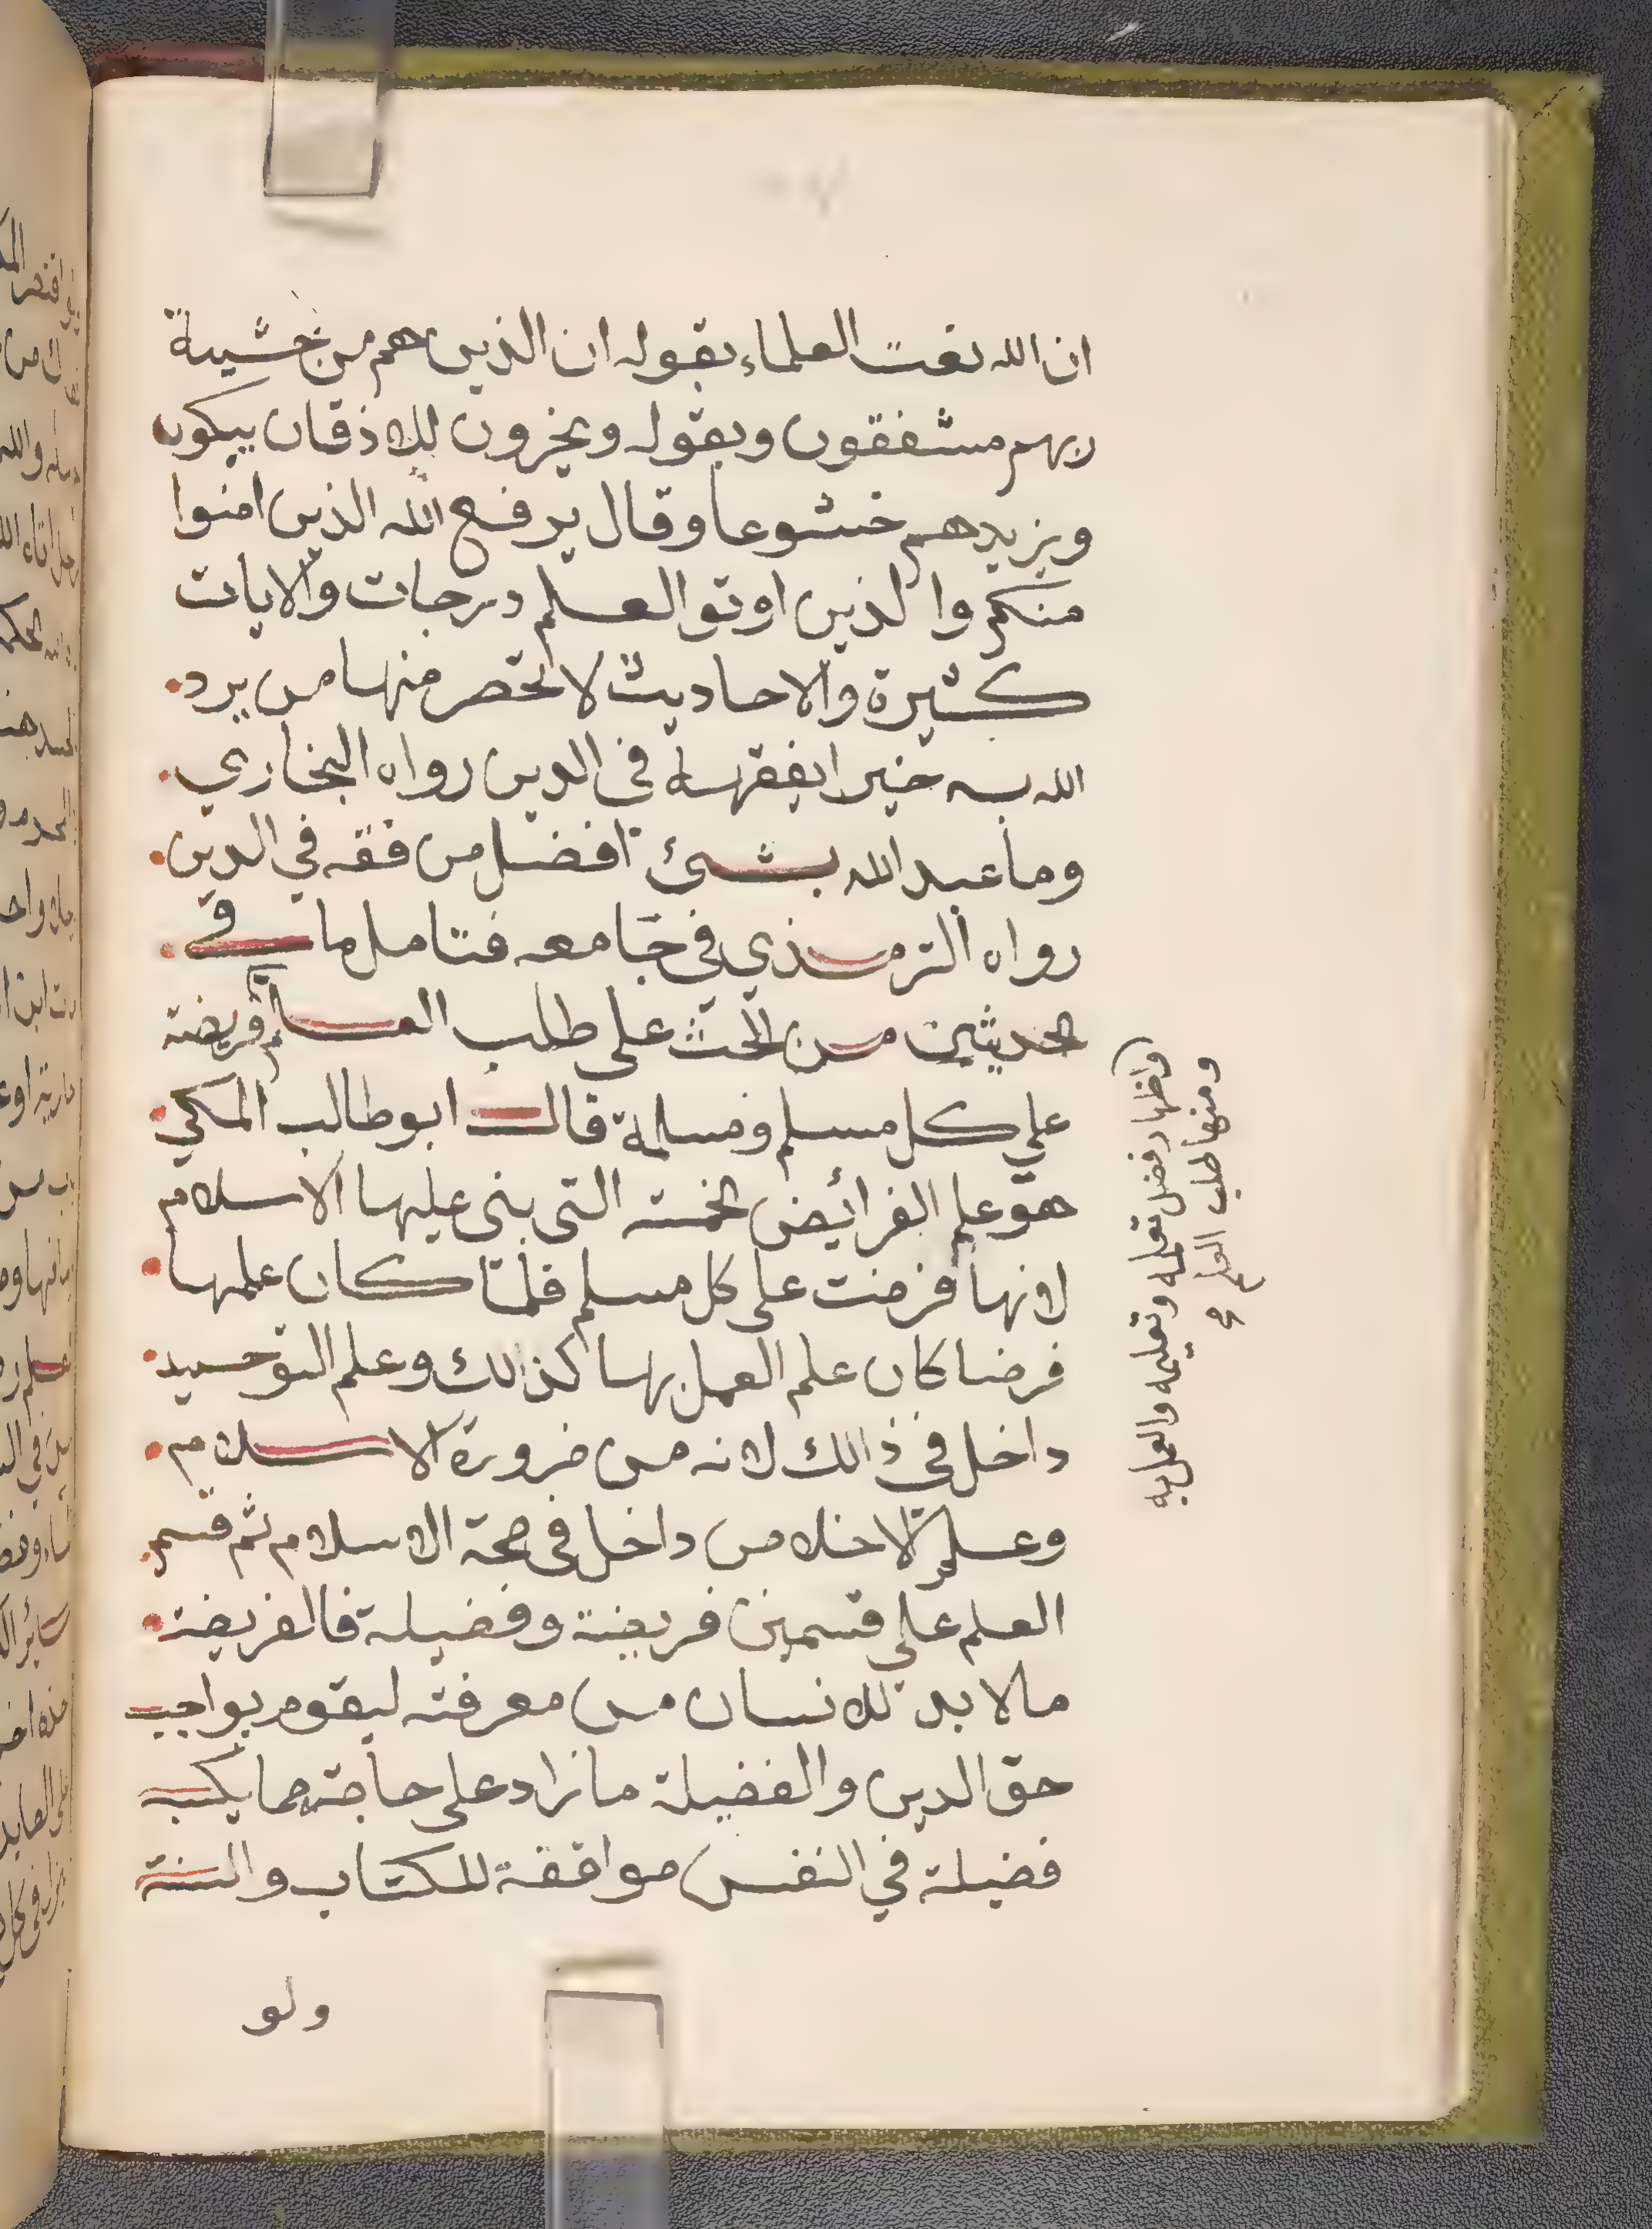 ان الله نعت العلماء بقوله ان الذين هم من خشية
ربهم مشفقون وبقوله ويخرون للاذقان يبكون
ويزيدهم خشوعا وقال يرفع الله الذين امنوا
منكم والذين اوتو العلم درجات والايات
كثيرة والاحاديث لا تحصر منها من يرد
الله به خيرا يفقهه في الدين رواه البخاري
وما عبد الله بشئ افضل من فقه في الدين
رواه الترمذي في جامعه فتامل ما في
الحديثين من الحث على طلب العلم فريضة
على كل مسلم ومسلمة قال ابو طالب المكي
هو علم الفرائض الخمسة التي بني عليها الاسلام
لانها فرضت على كل مسلم فلما كان علمها
فرضا كان علم العمل بها كذالك وعلم التوحيد
داخل في ذالك لانه من ضرورة الاسلام
وعلم الاخلاص داخل في صحة الاسلام ثم قسم
العلم على قسمين فريضة وفضيلة فالفريضة
مالا بد للانسان من معرفته ليقوم بواجب
حق الدين والفضيلة ما زاد على حاجته مما يكسبه
فضيلة في النفس موافقة للكتاب والسنة
ولو
ومنها طلب العلم
واظهار فضل تعلمه وتعليمه والعمل به